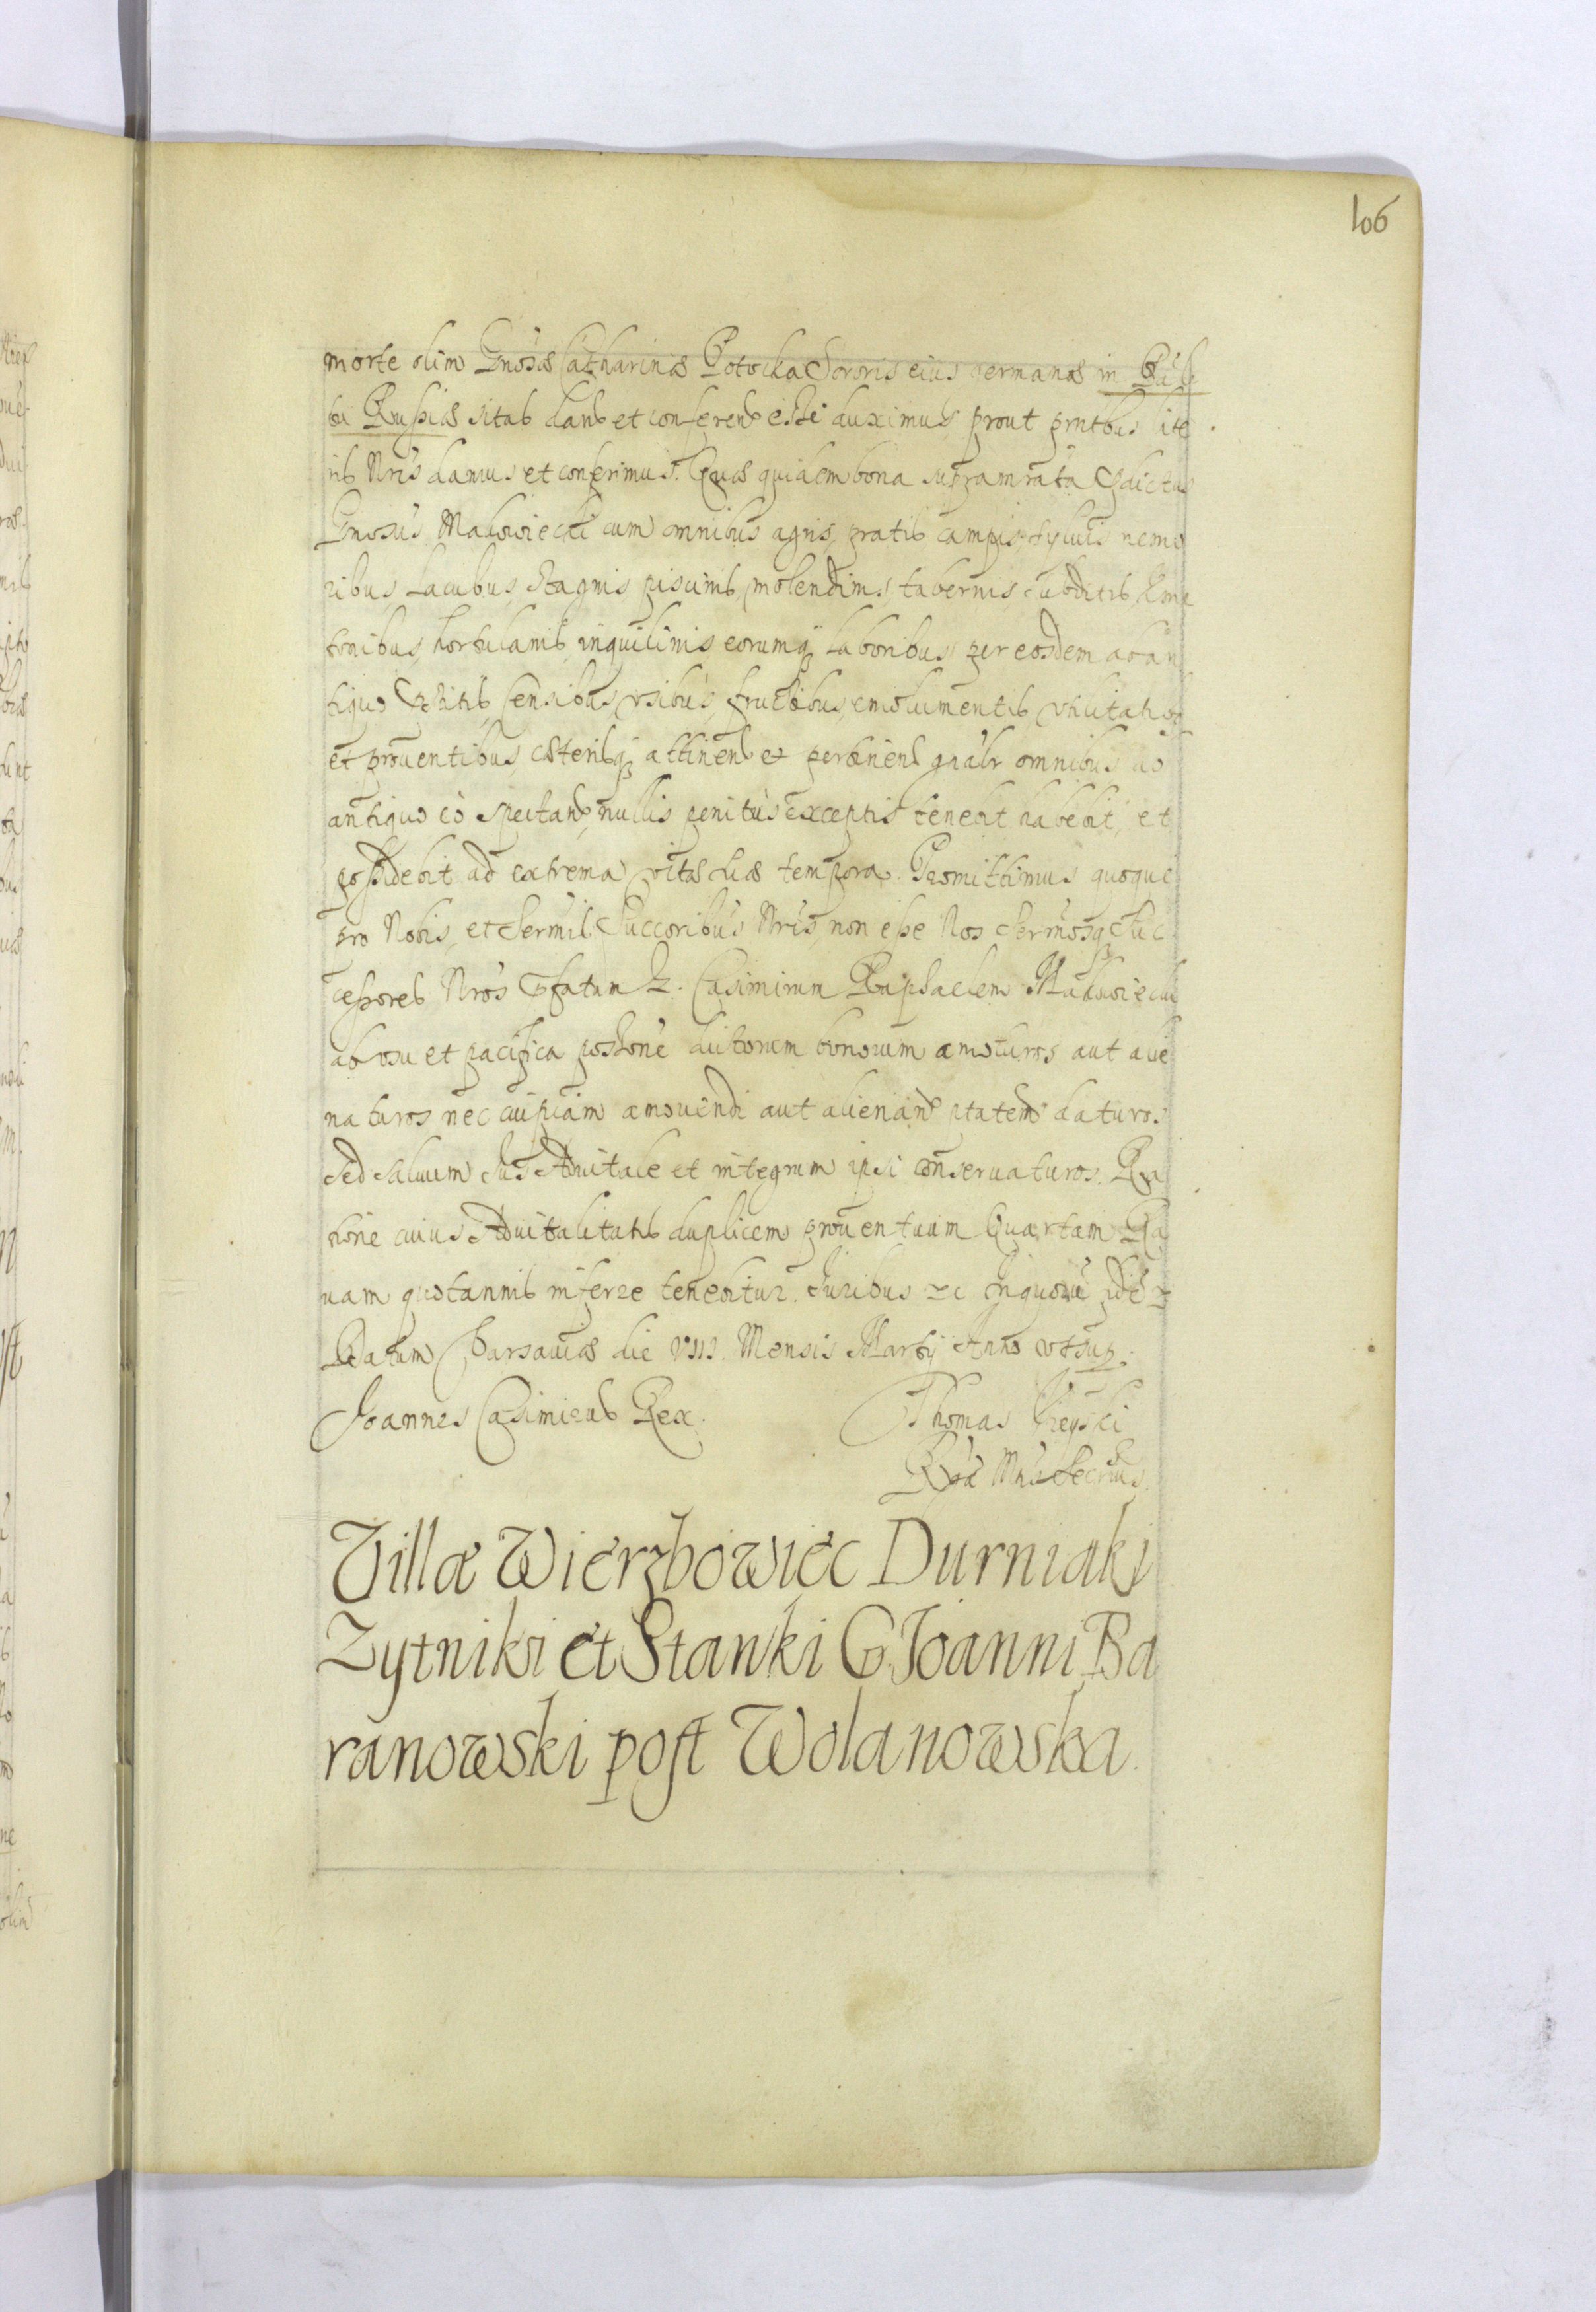 106
morte olim Gnosae Catharinae Potocka Sororis eius germanae in Pala
tu Russiae sitas dand et conferend esse duximus, prout pntbus lite
ris Nris damus et conferimus. Quae quidem bona supramrata Pdictus
Gnosus Makowiecki cum omnibus agris, pratis campis, sylvis nemo
ribus, Lacubus, Stagnis piscinis, molendinis, tabernis subditis Kme
tonibus, hortulanis, inquilinis eorumq laboribus per eosdem ab an
tiquo Pstitis, Censibus, usibus, fructibus, emolumentis, utilitatibus
et prouentibus, caeterisq attinen et pertinen gnalr omnibus ab
antiquo eo spectand, nullis penitus exceptis tenebit habebit, et
possidebit ad extrema vitae suae tempora. Promittimus quoque
pro Nobis, et Sermis Succoribus Nris, non esse Nos Sermosq Suc
cessores Nros Pfatum G. Casimirum Raphaelem Makowiecki
ab usu et pacifica possione dictorum bonorum amoturos aut alie
naturos nec cuipiam amovendi aut alienand ptatem daturos.
Sed salvum Jus Advitale et integrum ipsi conservaturos. Ra
tione cuius Advitalitatis duplicem prouentuum Quartam Ra
uam quotannis inferre tenebitur. Juribus etc In quorū fidē etc
Datum Varsaviae die VIII. Mensis Martij Anno ut sup.
Joannes Casimirus Rex. Thomas Uieyski
Rgae Mtis Secrius.
Villae Wierzbowiec Durniaki
Zytniki et Stanki G. Joanni Ba
ranowski post Wolanowska.